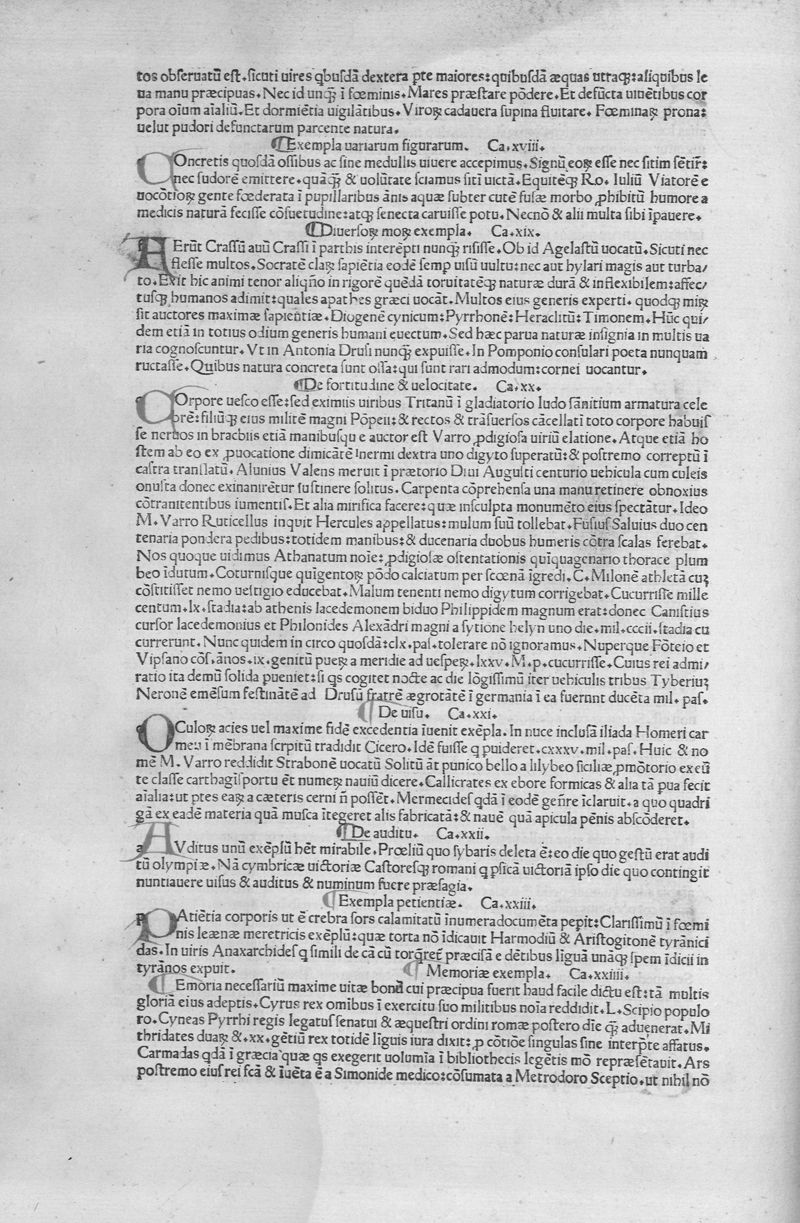 tos obseruatū est. sicuti uires qbusdā dextera pte maiores: quibusdā æquas utraqꝫ: aliquibus le
ua manu præcipuas. Nec id unqꝫ ī fœminis. Mares præstare pōdere. Et defūcta uiuētibus cor
pora oīum aīaliū. Et dormiētia uigilātibus. Viroꝝ cadauera supina fluitare. Fœminaꝝ prona:
uelut pudori defunctarum parcente natura.
¶Exempla uariarum figurarum. Ca.xviii.
COncretis quosdā ossibus ac sine medullis uiuere accepimus. Signū eoꝝ esse nec sitim sētir̄:
nec sudorē emittere. quāqꝫ & uolūtate sciamus sitī uictā. Equitēqꝫ Ro. Iuliū Viatorē e
uocōtioꝝ gente fœderata ī pupillaribus ānis aquæ subter cutē fusæ morbo ꝓhibitū humore a
medicis naturā fecisse cōsuetudine: atqꝫ senecta caruisse potu. Necnō & alii multa sibi īpauere.
¶Diuersoꝝ moꝝ exempla. Ca.xix.
FErūt Crassū auū Crassi ī parthis interēpti nunqꝫ risisse. Ob id Agelastū uocatū. Sicuti nec
flesse multos. Socratē claꝝ sapiētia eodē semp uisū uultu: nec aut hylari magis aut turba/
to. Exit hic animi tenor aliqn̄o in rigorē quēdā toruitatēqꝫ naturæ durā & inflexibilem: affec/
tusqꝫ humanos adimit: quales apathes græci uocāt. Multos eius generis experti. quodqꝫ miꝝ
sit auctores maximæ sapientiæ. Diogenē cynicum: Pyrrhonē: Heraclitū: Timonem. Hūc qui/
dem etiā in totius odium generis humani euectum. Sed hæc parua naturæ insignia in multis ua
ria cognoscuntur. Vt in Antonia Drusi nunqꝫ expuisse. In Pomponio consulari poeta nunquam
ructasse. Quibus natura concreta sunt ossa: qui sunt rari admodum: cornei uocantur.
¶De fortitudine & uelocitate. Ca.xx.
COrpore uesco esse: sed eximiis uiribus Tritanū ī gladiatorio ludo sānitium armatura cele
brē: filiūqꝫ eius militē magni Pōpeii: & rectos & trāsuersos cācellatī toto corpore habuis
se neruos in brachiis etiā manibusqu e auctor est Varro ꝓdigiosa uiriū elatione. Atque etiā ho
stem ab eo ex ꝓuocatione dimicātē inermi dextra uno digyto superatū: & postremo correptū ī
castra translatū. Aiunius Valens meruit ī prætorio Diui Augusti centurio uehicula cum culeis
onusta donec exinanirētur sustinere solitus. Carpenta cōprehensa una manu retinere obnoxius
cōtranitentibus iumentis. Et alia mirifica facere: quæ insculpta monumēto eius spectātur. Ideo
M. Varro Ruticellus inquit Hercules appellatus: mulum suū tollebat. Fusius Saluius duo cen
tenaria pondera pedibus: totidem manibus: & ducenaria duobus humeris cōtra scalas ferebat.
Nos quoque uidimus Athanatum noīe: ꝓdigiosæ ostentationis quīquagenario thorace plum
beo īdutum. Coturnisque quīgentoꝝ pōdo calciatum per scœnā īgredi. C. Milonē athletā cuꝫ
cōstitisset nemo uestigio educebat. Malum tenenti nemo digytum corrigebat. Cucurrisse mille
centum. lx. stadia: ab athenis lacedemonem biduo Philippidem magnum erat: donec Canistius
cursor lacedemonius et Philonides Alexādri magni a sytione helyn uno die. mil. cccii. stadia cu
currerunt. Nunc quidem in circo quosdā: clx. pas. tolerare nō ignoramus. Nuperque Fōteio et
Vipsano cōs. ānos. ix. genitū pueꝝ a meridie ad uespeꝝ. lxxv. M. p. cucurrisse. Cuius rei admi/
ratio ita demū solida pueniet: si qs cogitet nocte ac die lōgissimū iter uehiculis tribus Tyberiuꝫ
Neronē emēsum festinātē ad Drusū fratrē ægrotātē ī germania ī ea fuernnt ducēta mil. pas.
¶De uisu. Ca.xxi.
OCuloꝝ acies uel maxime fidē excedentia iuenit exēpla. In nuce inclusā iliada Homeri car
men ī mēbrana scrpitū tradidit Cicero. Idē fuisse q puideret. cxxxv. mil. pas. Huic & no
mē M. Varro reddidit Strabonē uocatū Solitū āt punico bello a lilybeo siciliæ ꝓmōtorio exeū
te classe carthagīs portu ēt numeꝝ nauiū dicere. Callicrates ex ebore formicas & alia tā pua fecit
aīalia: ut ptes eaꝝ a cæteris cerni n̄ possēt. Mermecides qdā ī eodē gen̄re īclaruit. a quo quadri
gā ex eadē materia quā musca ītegeret alis fabricatā: & nauē quā apicula pēnis abscōderet.
¶De auditu. Ca.xxii.
AVditus unū exēplū hēt mirabile. Prœliū quo sybaris deleta ē: eo die quo gestū erat audi
tū olympiæ. Nā cymbricæ uictoriæ Castoresqꝫ romani q psicā uictoriā ipso die quo contingit
nuntiauere uisus & auditus & numinum fuere præsagia.
¶Exempla petientiæ. Ca.xxiii.
PAtiētia corporis ut ē crebra sors calamitatū īnumera documēta pepit: Clarissimū ī fœmi
nis leænæ meretricis exēplū: quæ torta nō īdicauit Harmodiū & Aristogitonē tyrānici
das. In uiris Anaxarchides q simili de cā cū torqret̄ præcisā e dētibus līguā unāqꝫ spem īdicii in
tyrānos expuit. ¶Memoriæ exempla. Ca.xxiiii.
¶Emoria necessariū maxime uitæ bonū cui præcipua fuerit haud facile dictu est: tā multis
gloriā eius adeptis. Cyrus rex omibus ī exercitu suo militibus noīa reddidit. L. Scipio populo
ro. Cyneas Pyrrhi regis legatus senatui & æquestri ordini romæ postero die qꝫ aduenerat. Mi
thridates duaꝝ &. xx. gētiū rex totidē līguis iura dixit: ꝓ cōtiōe singulas sine interpte affatus.
Carmadas qdā ī græcia quæ qs exegerit uolumīa ī bibliothecis legētis mō repræsētauit. Ars
postremo eius rei fcā & īuēta ē a Simonide medico: cōsumata a Metrodoro Sceptio. ut nihil nō